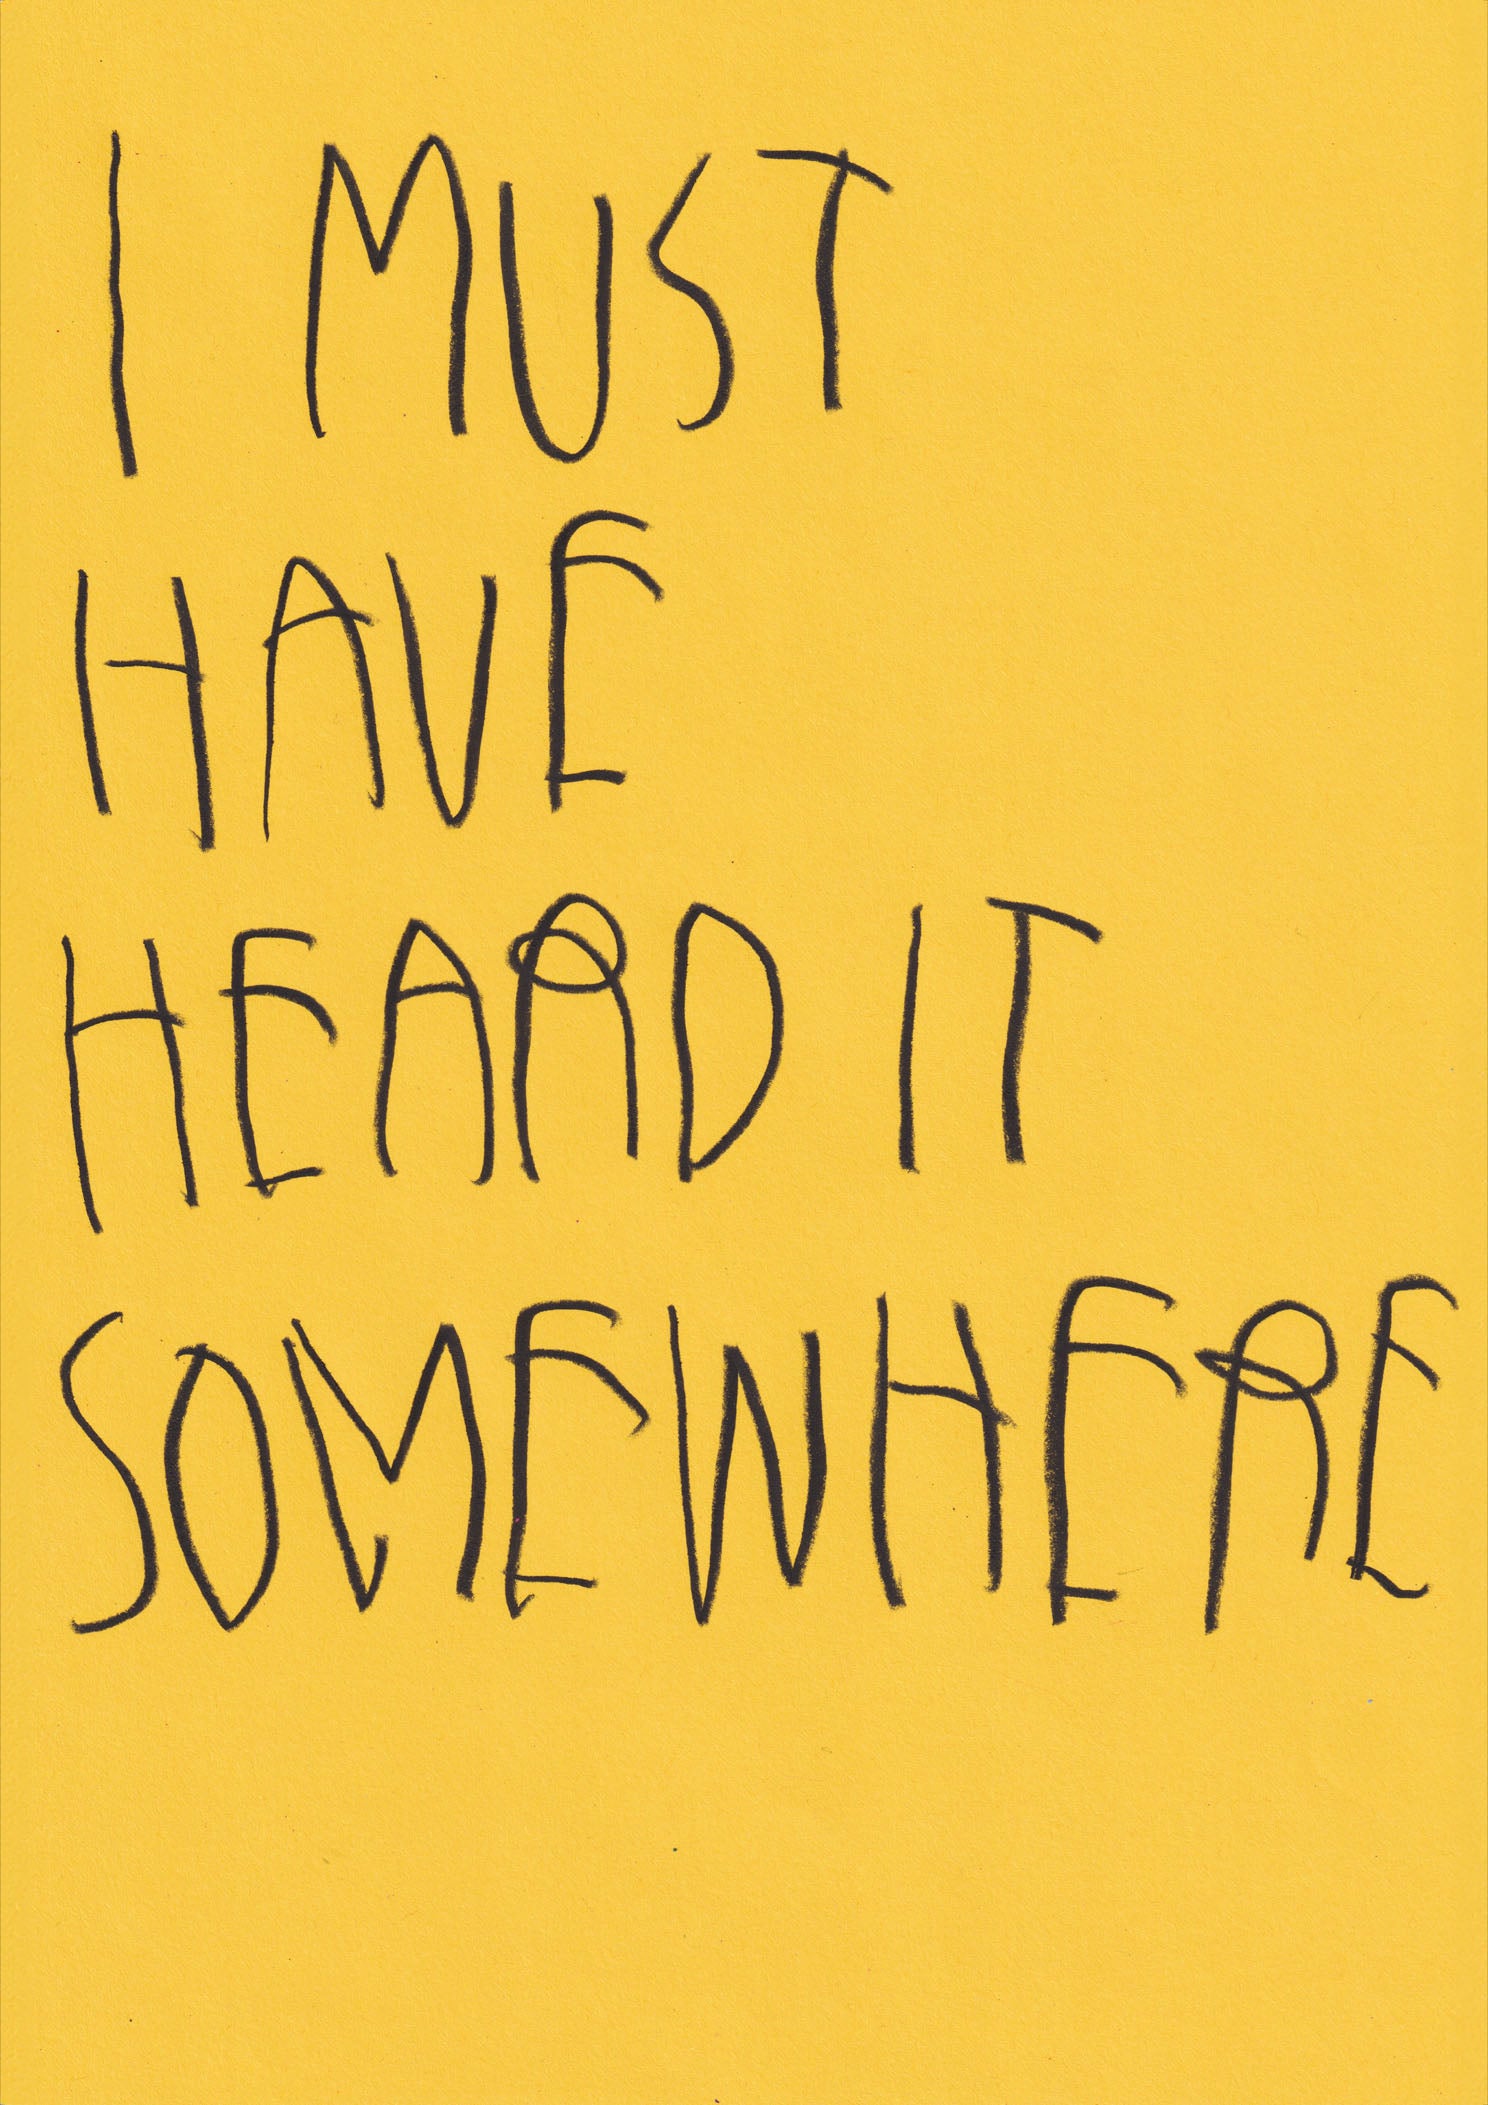 I MUST
HAVE
HEARD IT
SOMEWHERE